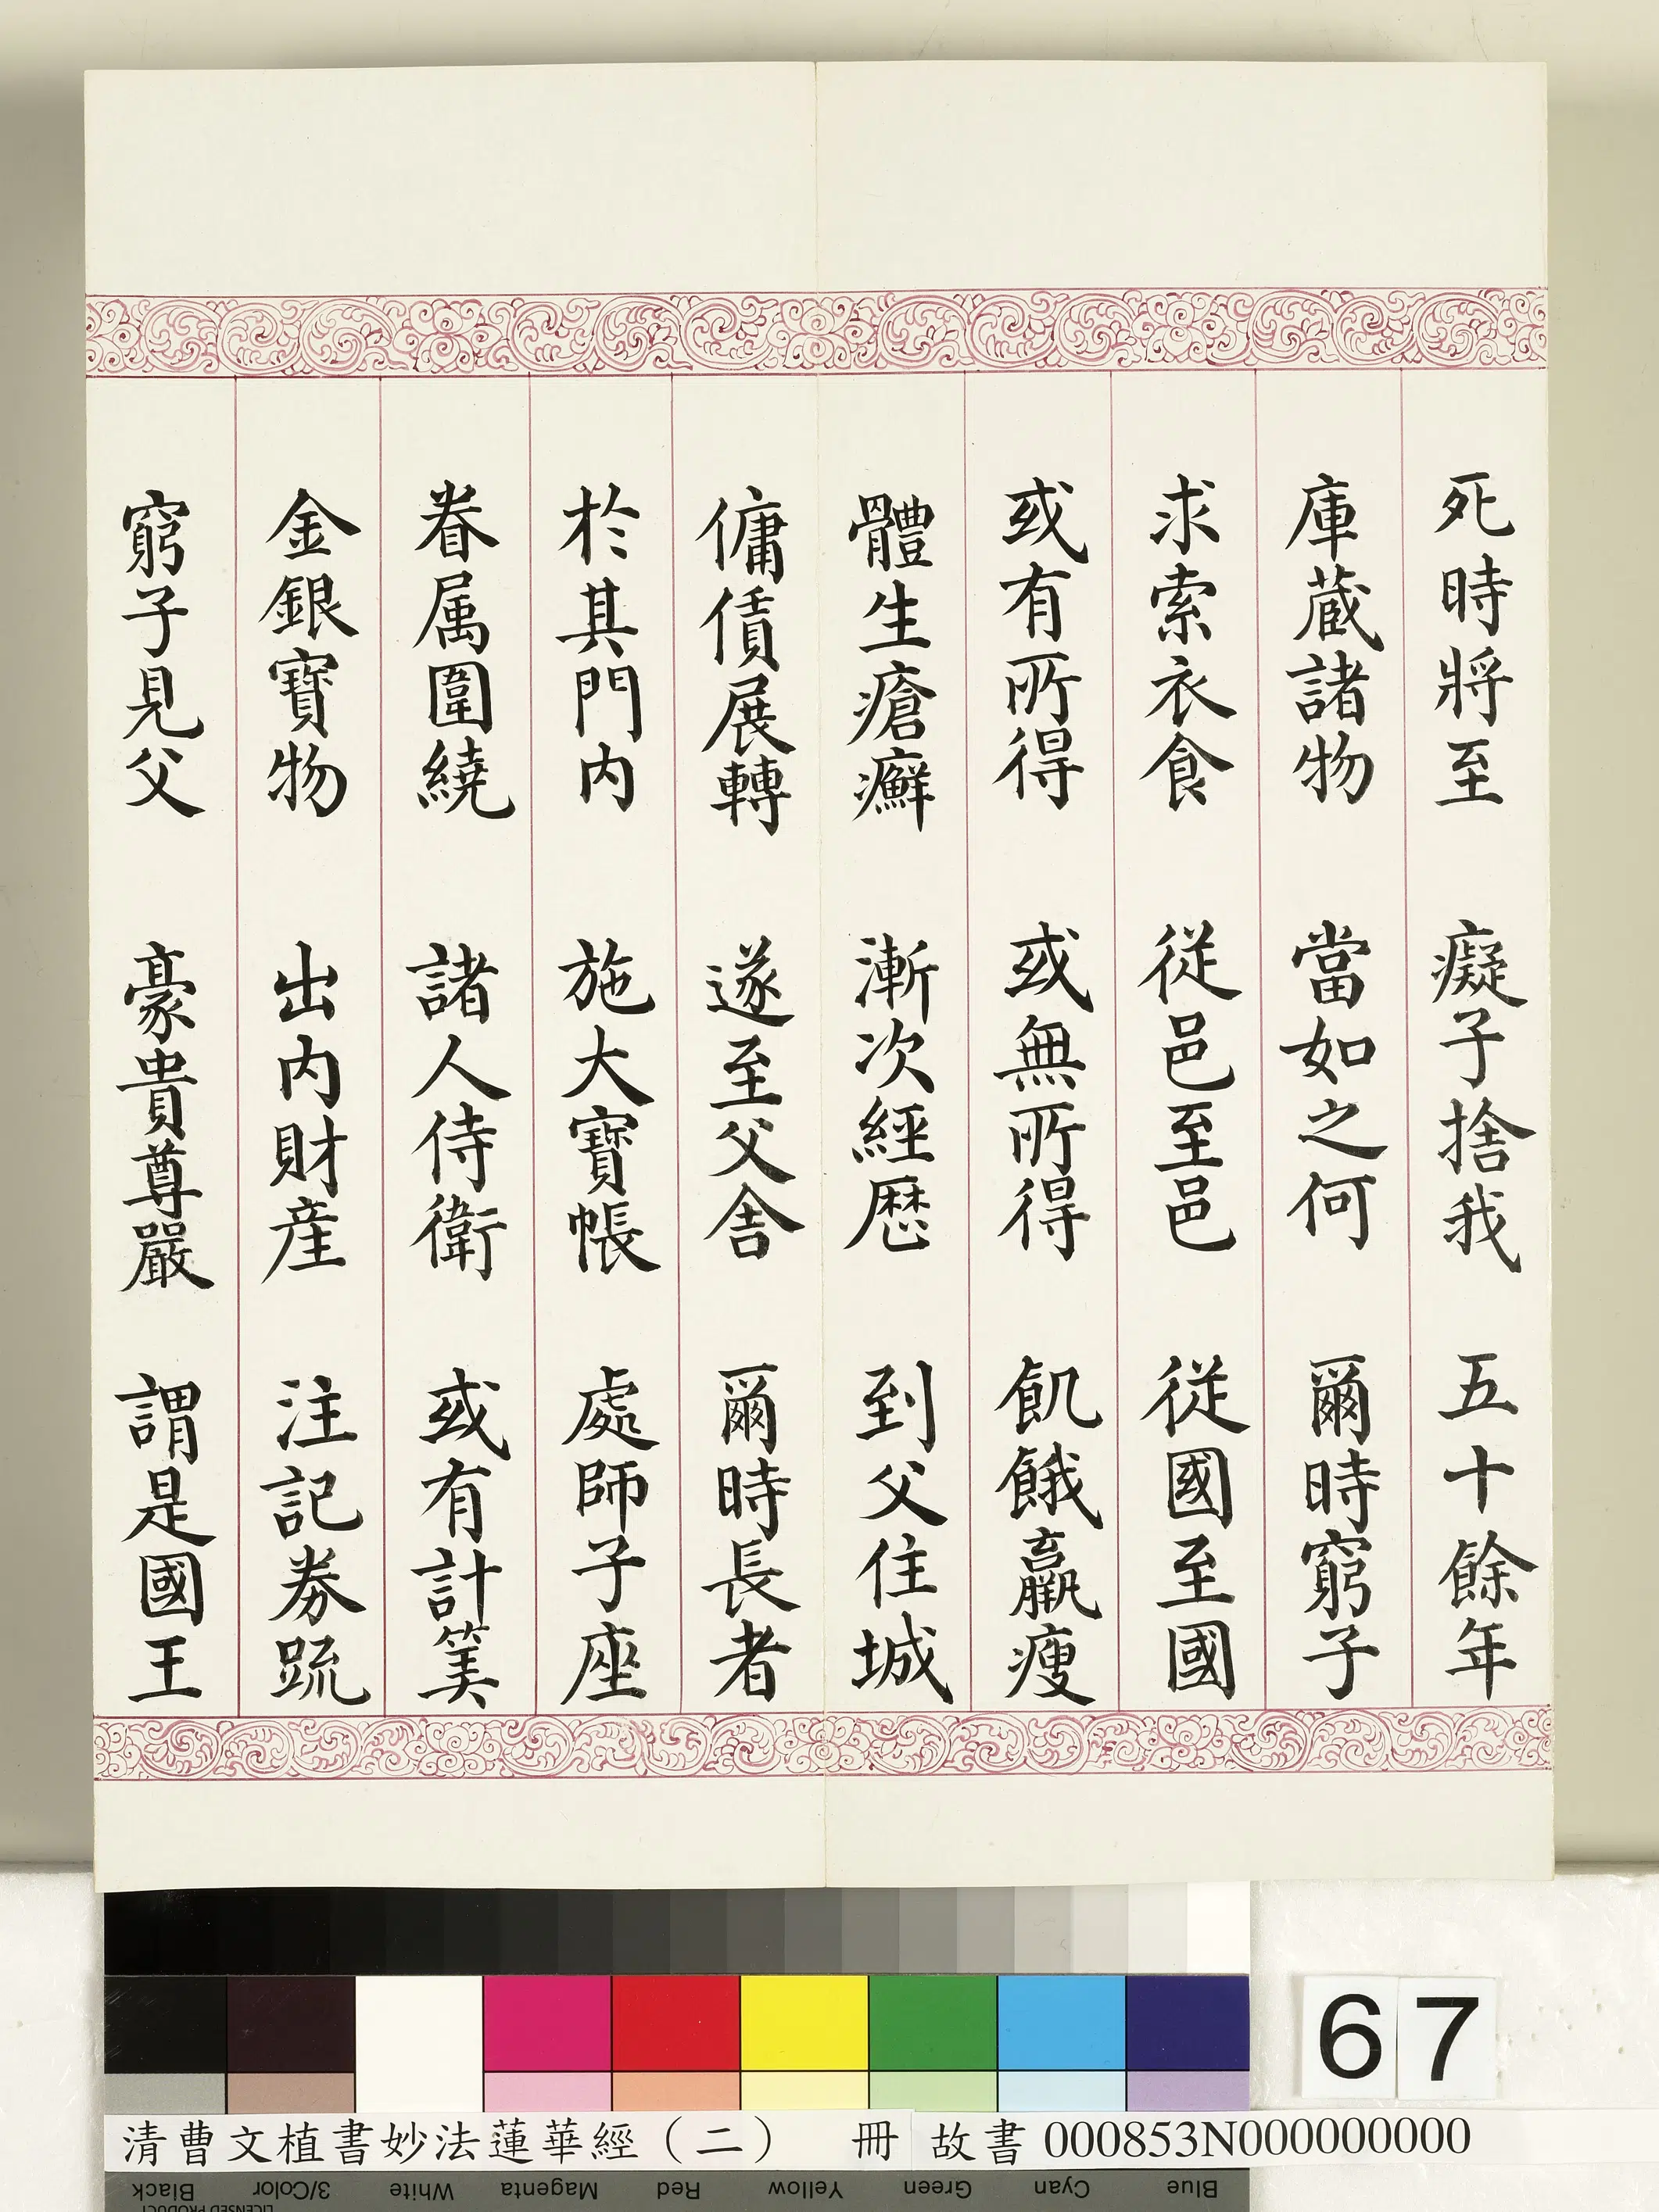 死時將至 癡子捨我 五十餘年
庫蔵諸物 當如之何 爾時窮子
求索衣食 從邑至邑 從國至國
或有所得 或無所得 飢餓羸瘦
體生瘡癬 漸次經歷 到父住城
傭債展轉 遂至父舍 爾時長者
於其門内 施大寶帳 處師子座
眷属圍繞 諸人侍衛 或有計筭
金銀寶物 出内財産 注記券疏
窮子見父 豪貴尊嚴 謂是國王
67
清曹文植書妙法蓮華經（二） 冊 故書 000853N000000000
Black 3/Color White Magenta Red Yellow Green Cyan Blue
LICENSED PRODUCT